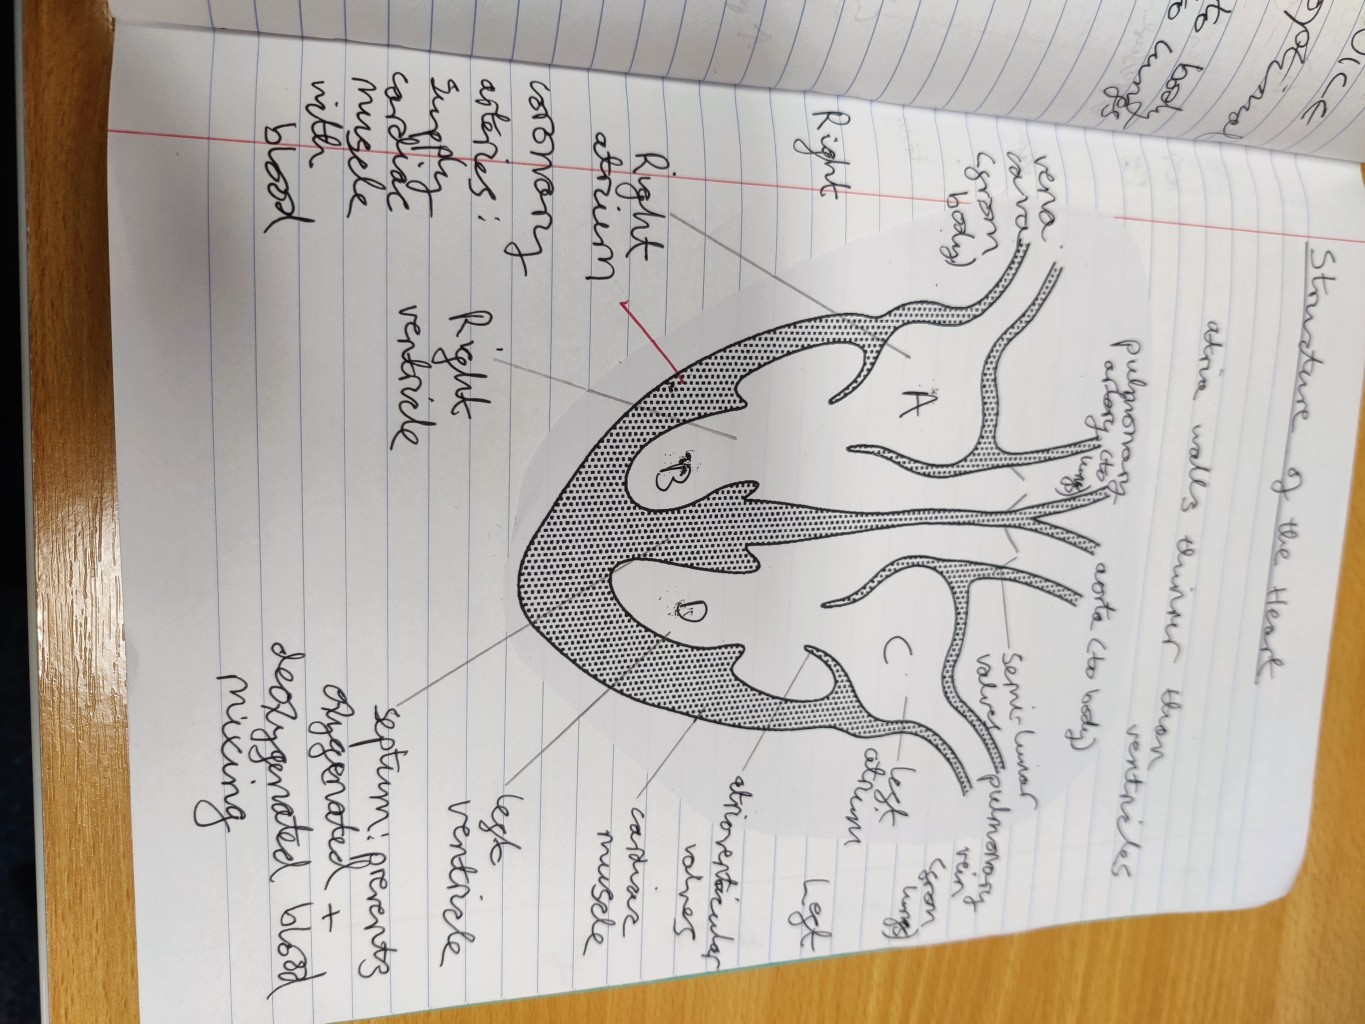 Structure of the Heart
atria walls thinner than
ventricles
vena
cava
(from
body)
pulmonary
artery (to
lungs)
aorta (to body)
semi-lunar
valves
pulmonary
vein
(from
lungs)
Right
Left
A
C
B
D
Right
atrium
left
atrium
atrioventricular
valves
cardiac
muscle
left
ventricle
Right
ventricle
coronary
arteries:
supply
cardiac
muscle
with
blood
septum: prevents
oxygenated +
deoxygenated blood
mixing
to body
to lungs